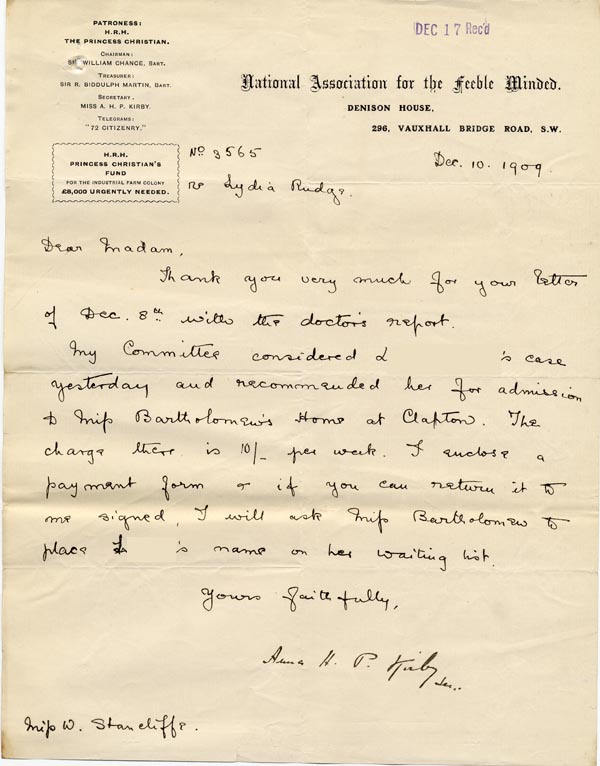 PATRONESS:
H.R.H.
THE PRINCESS CHRISTIAN.
CHAIRMAN:
SIR WILLIAM CHANCE, BART.
TREASURER:
SIR R. BIDDULPH MARTIN, BART.
SECRETARY.
MISS A. H. P. KIRBY.
TELEGRAMS:
"72 CITIZENRY."
H.R.H.
PRINCESS CHRISTIAN'S
FUND
FOR THE INDUSTRIAL FARM COLONY
£8,000 URGENTLY NEEDED.
DEC 17 Rec'd
National Association for the Feeble Minded.
DENISON HOUSE,
296, VAUXHALL BRIDGE ROAD, S.W.
No 3565
Dec. 10. 1909
re Lydia Rudge.
Dear Madam,
Thank you very much for your letter
of Dec. 8th with the doctor's report.
My Committee considered L 's case
yesterday and recommended her for admission
to Miss Bartholomew's Home at Clapton. The
charge there is 10/- per week. I enclose a
payment form & if you can return it to
me signed, I will ask Miss Bartholomew to
place L 's name on her waiting list.
Yours faithfully,
Anna H. P. Kirby
Sec.
Miss W. Stancliffe.